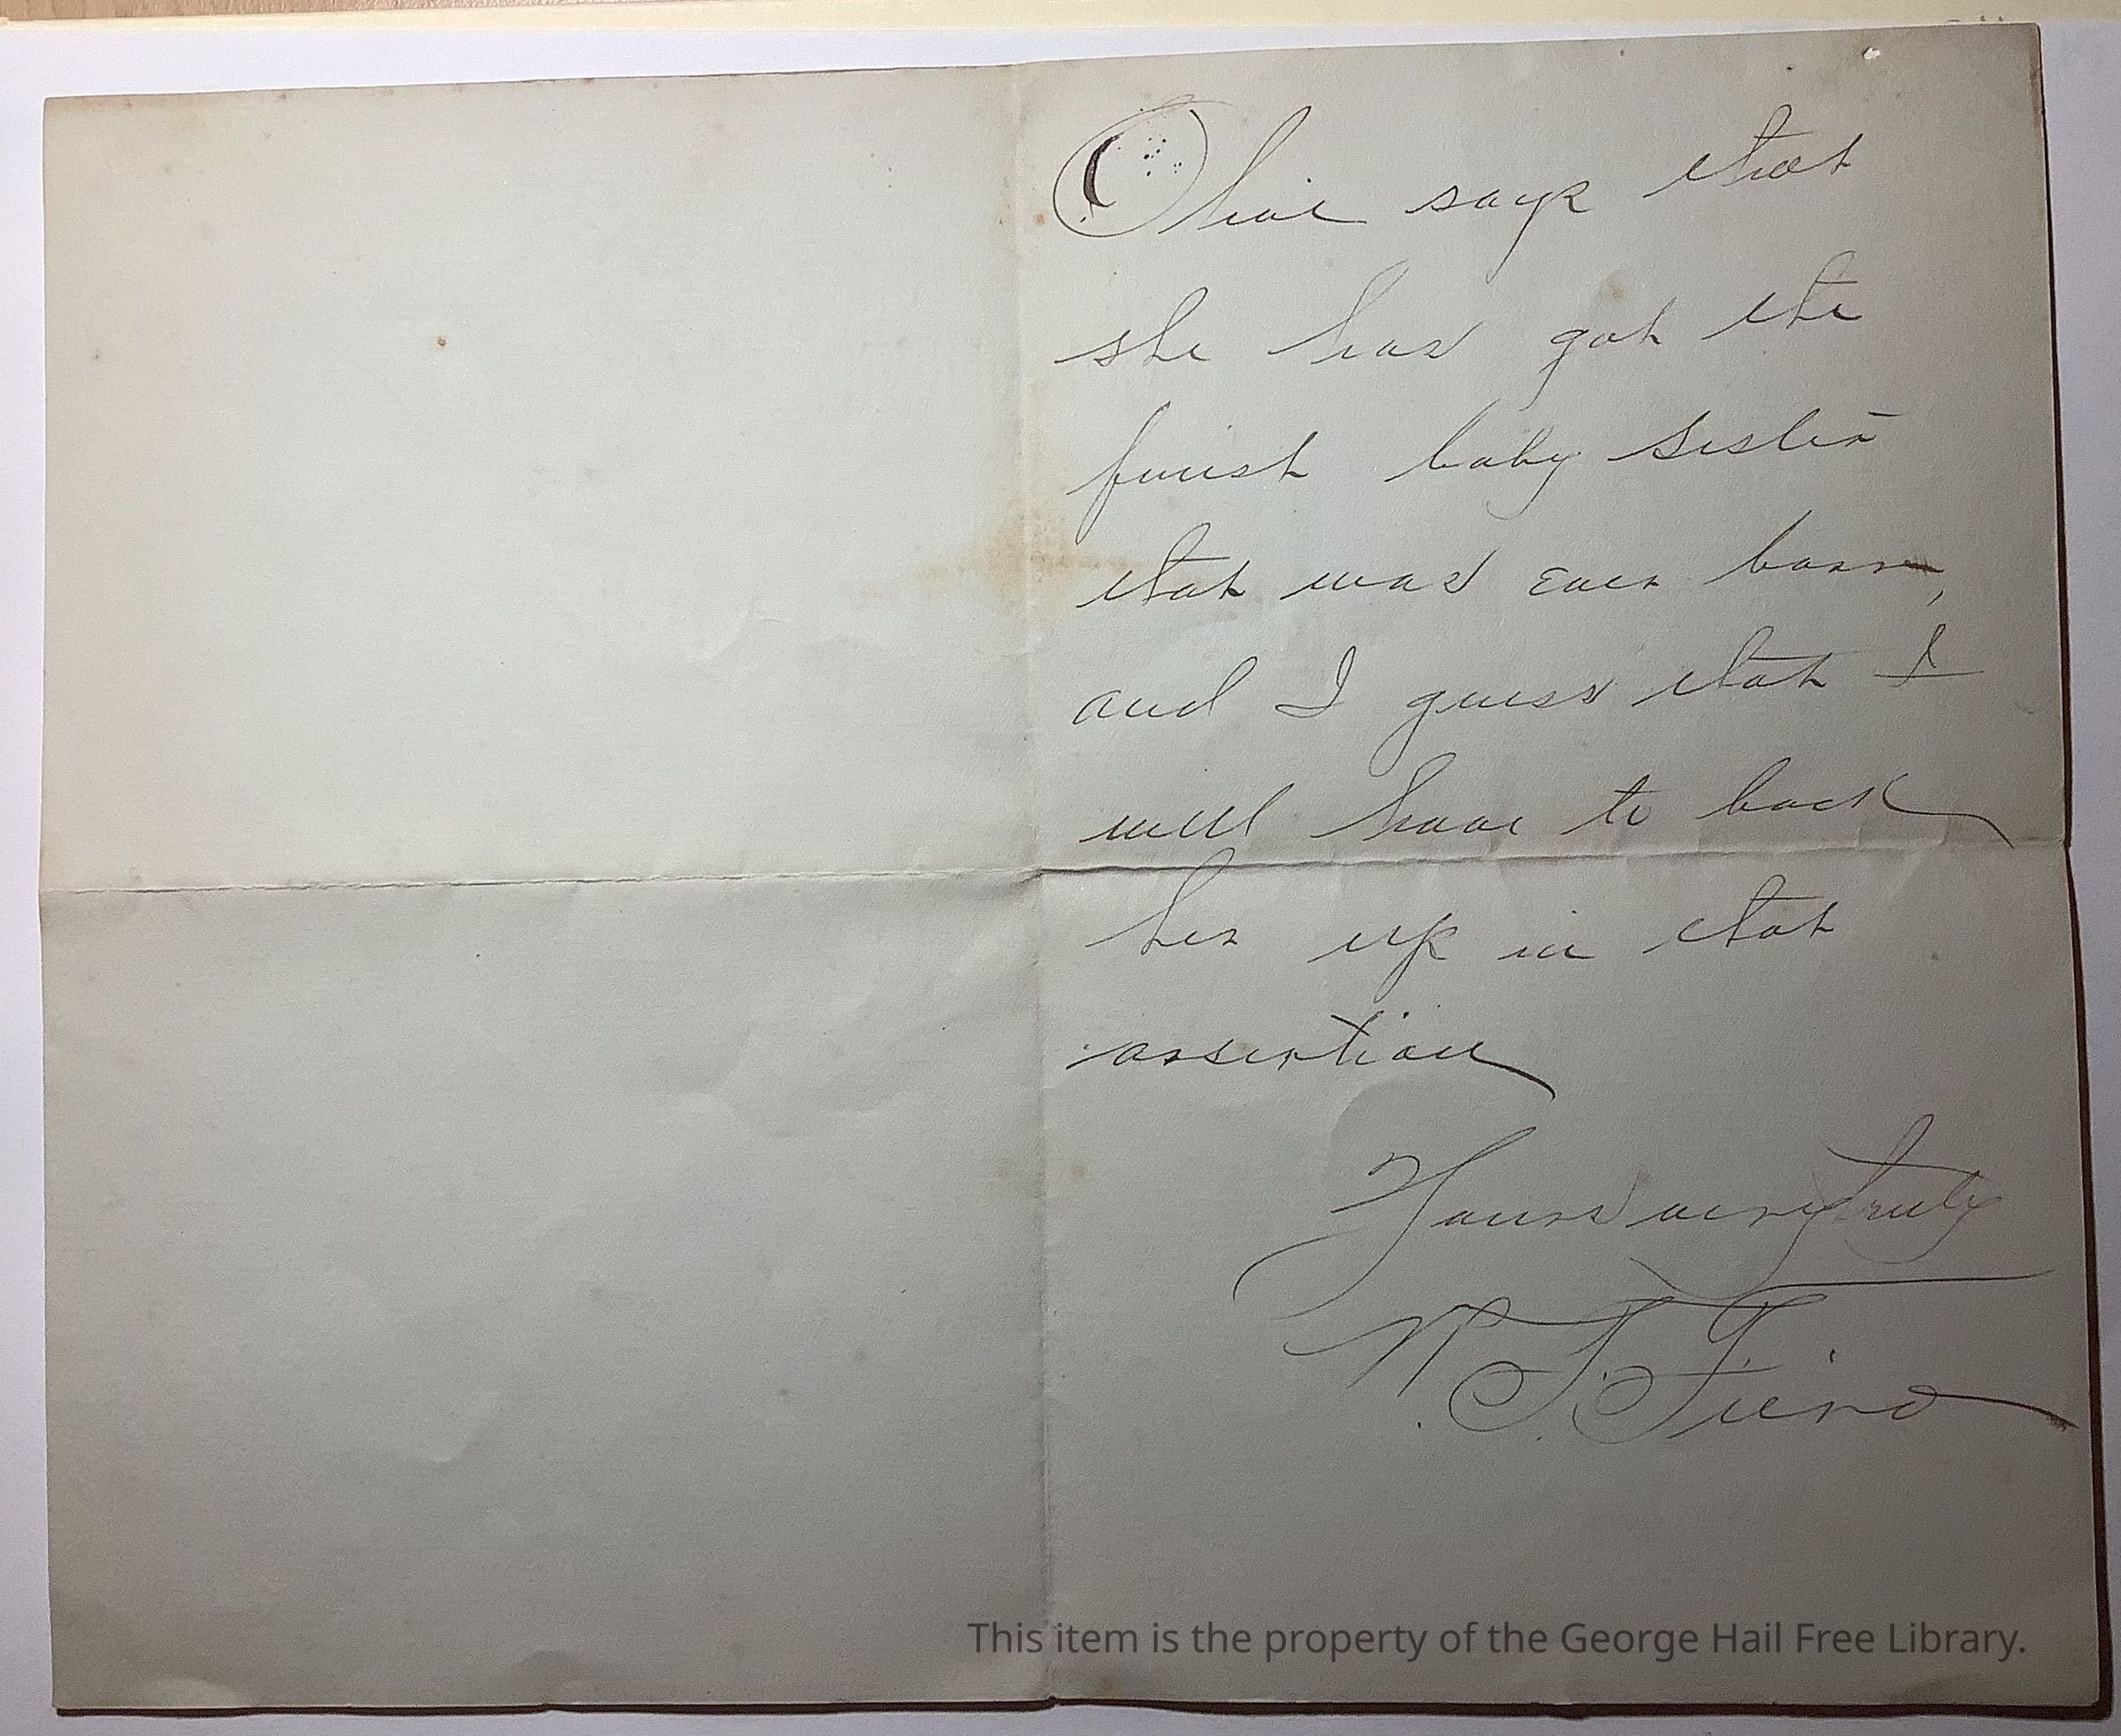 Olive says that
she has got the
finest baby sister
that was ever born,
and I guess that I
will have to back
her up in that
assertion
Yours very truly
This item is the property of the George Hail Free Library.